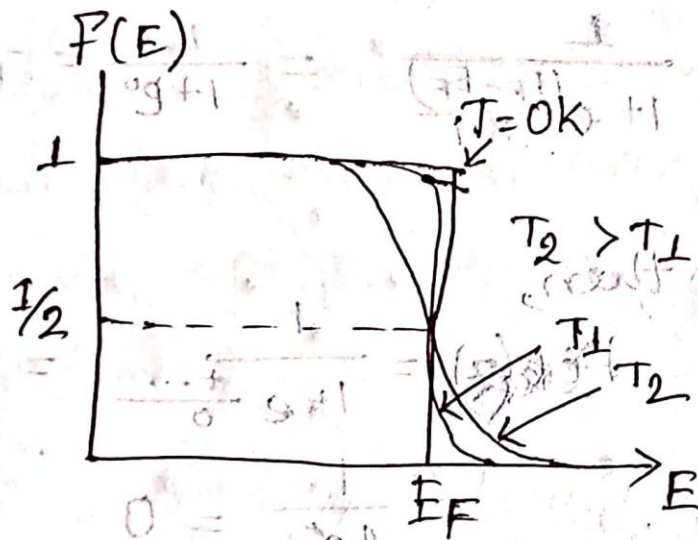 F(E)
T=0K
1
T2 > T1
1/2
T1
T2
EF
E